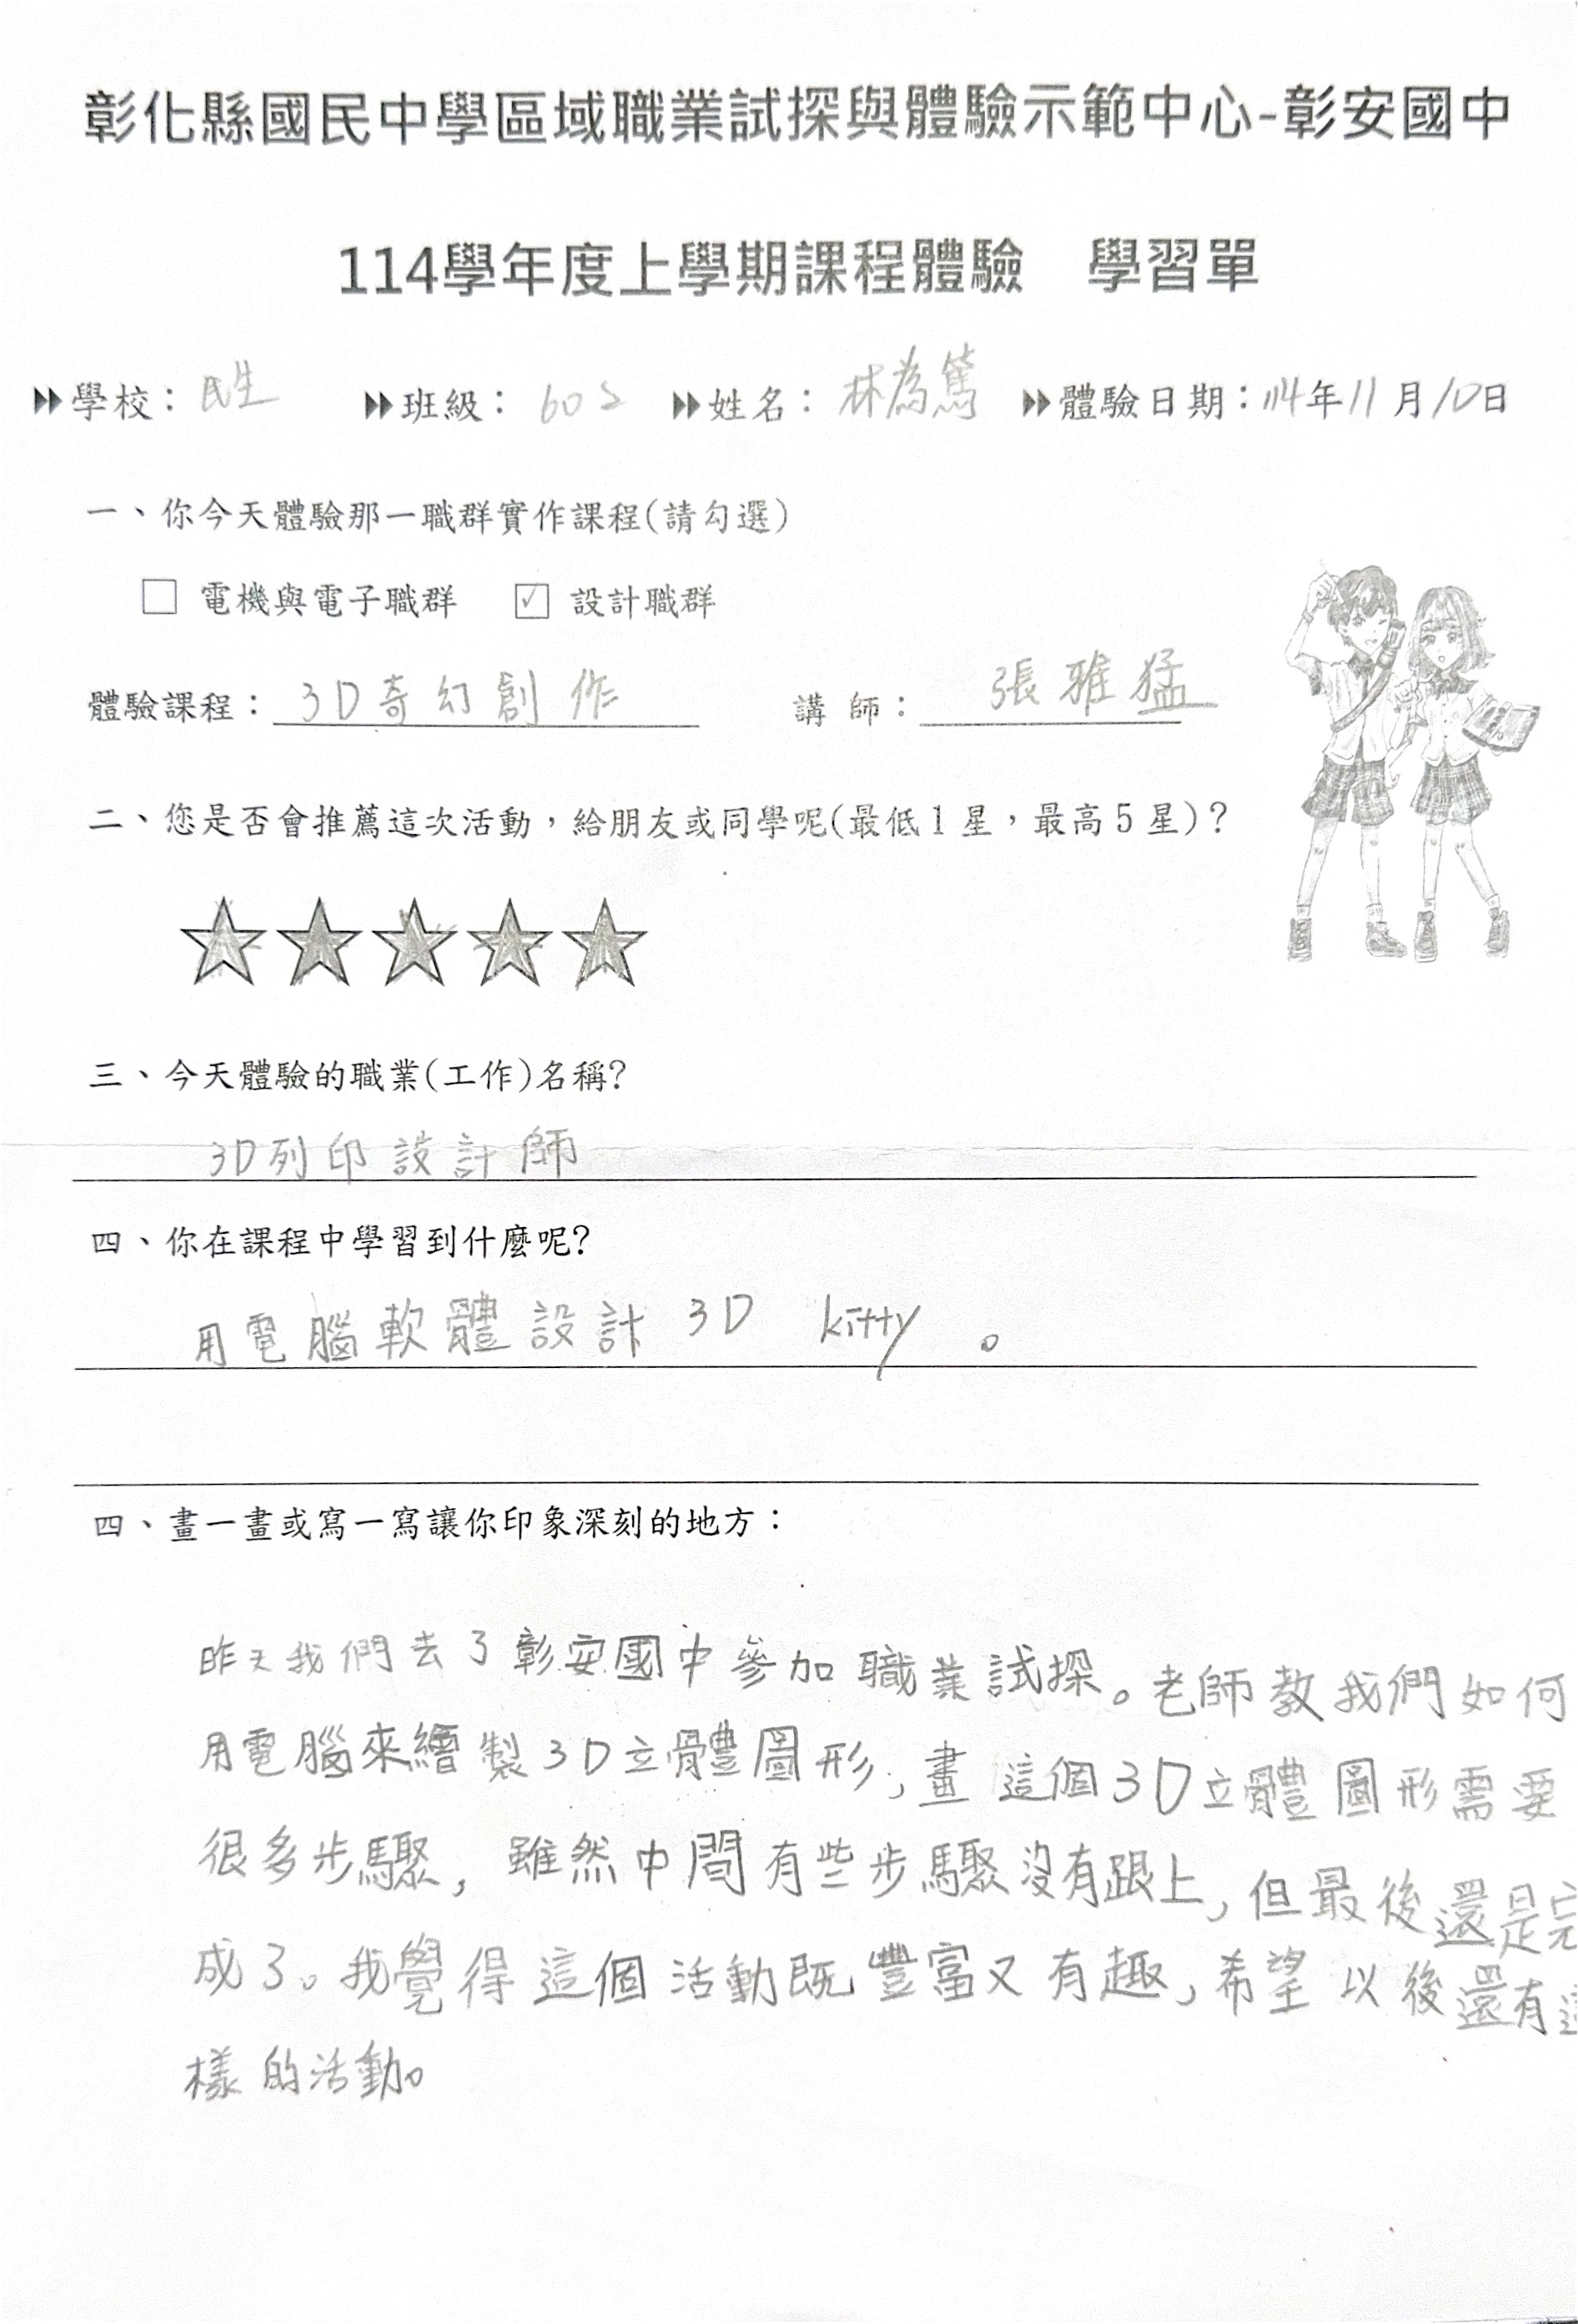 彰化縣國民中學區域職業試探與體驗示範中心-彰安國中
114學年度上學期課程體驗 學習單
學校：民生 班級：602 姓名：林為篤 體驗日期：114年11月10日
一、你今天體驗那一職群實作課程(請勾選)
□ 電機與電子職群 ☑ 設計職群
體驗課程：3D奇幻創作 講 師：張雅猛
二、您是否會推薦這次活動，給朋友或同學呢(最低1星，最高5星)？
三、今天體驗的職業(工作)名稱?
3D列印設計師
四、你在課程中學習到什麼呢?
用電腦軟體設計 3D kitty 。
四、畫一畫或寫一寫讓你印象深刻的地方：
昨天我們去了彰安國中參加職業試探。老師教我們如何
用電腦來繪製3D立體圖形，畫這個3D立體圖形需要
很多步驟，雖然中間有些步驟沒有跟上，但最後還是完
成了。我覺得這個活動既豐富又有趣，希望以後還有這
樣的活動。